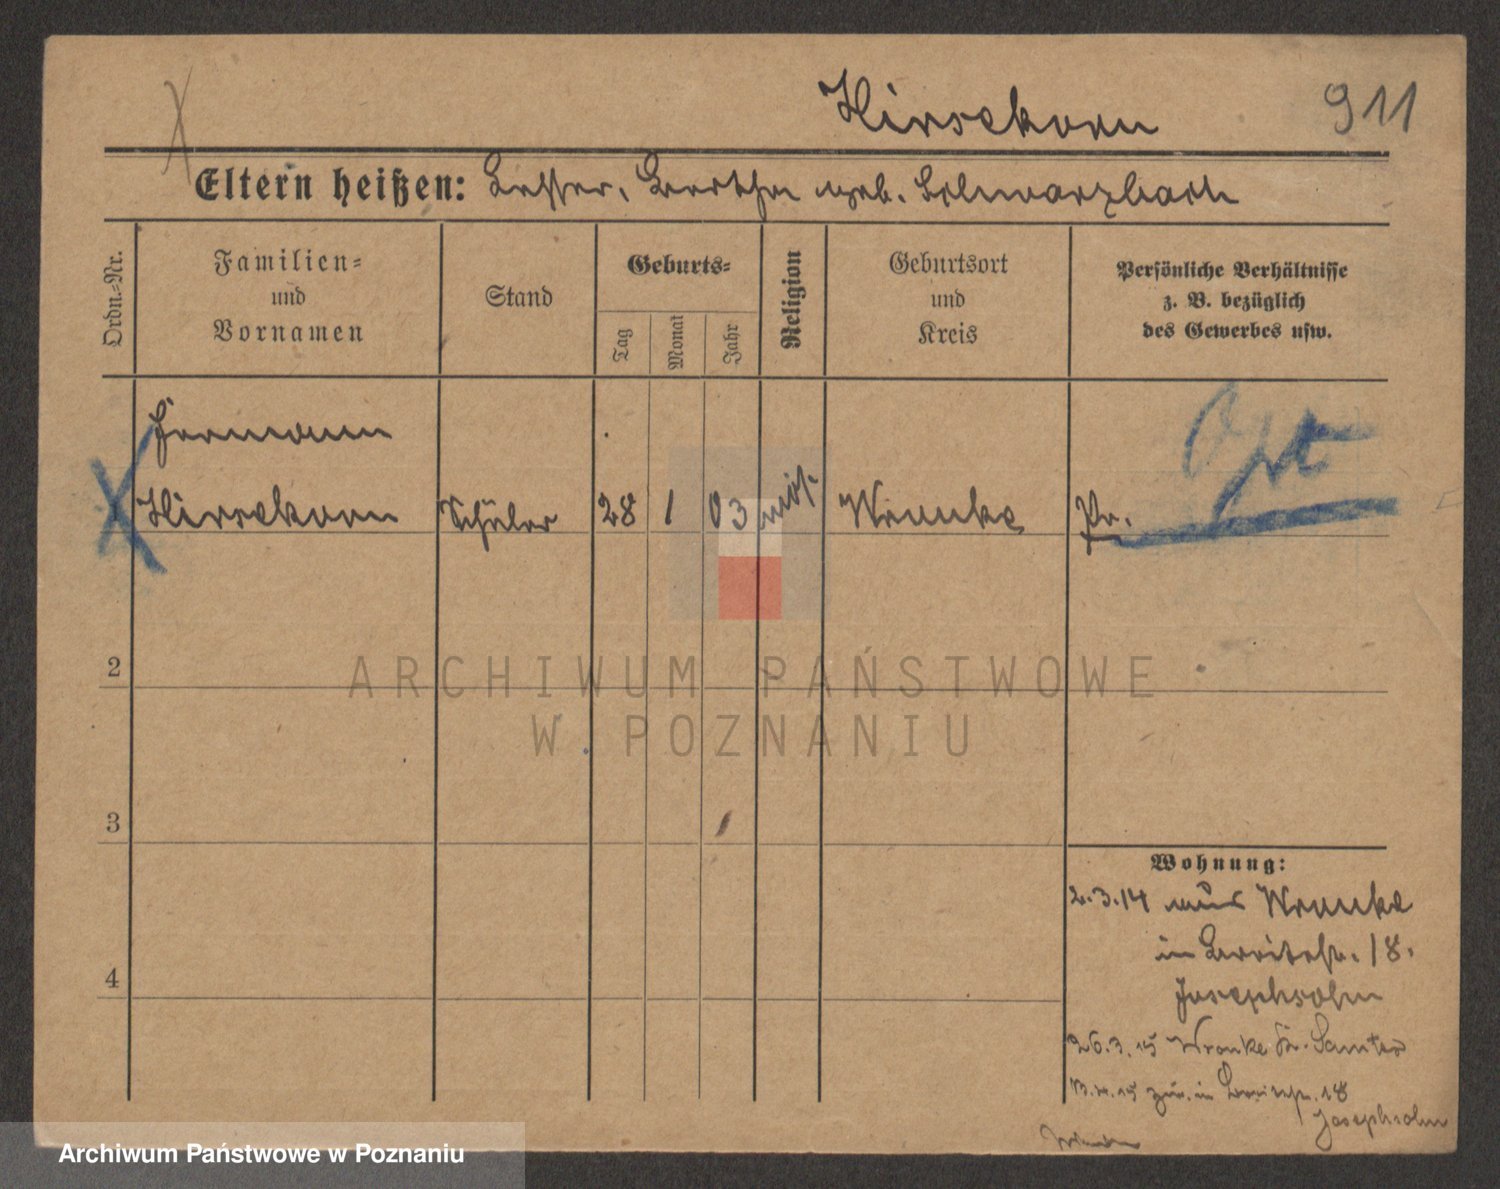 Hirsekorn 911
Eltern heißen: Lesser, Bertha geb. Schwarzbach
Ordn.-Nr.
Familien-
und
Vornamen
Stand
Geburts-
Tag
Monat
Jahr
Religion
Geburtsort
und
Kreis
Persönliche Verhältnisse
z. B. bezüglich
des Gewerbes usw.
Hermann
Hirsekorn Schüler 28 1 03 mos. Wronke Pr.
Opt
2
3
4
ARCHIWUM PAŃSTWOWE
W POZNANIU
Wohnung:
2.3.14 aus Wronke
in Breitestr. 18.
Josephsohn
26.3.15 Wronke Kr. Samter
15 zur. in Breitestr. 18
Josephsohn
Archiwum Państwowe w Poznaniu